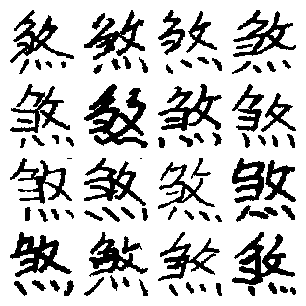 煞煞煞煞
煞煞煞煞
煞煞煞煞
煞煞煞煞